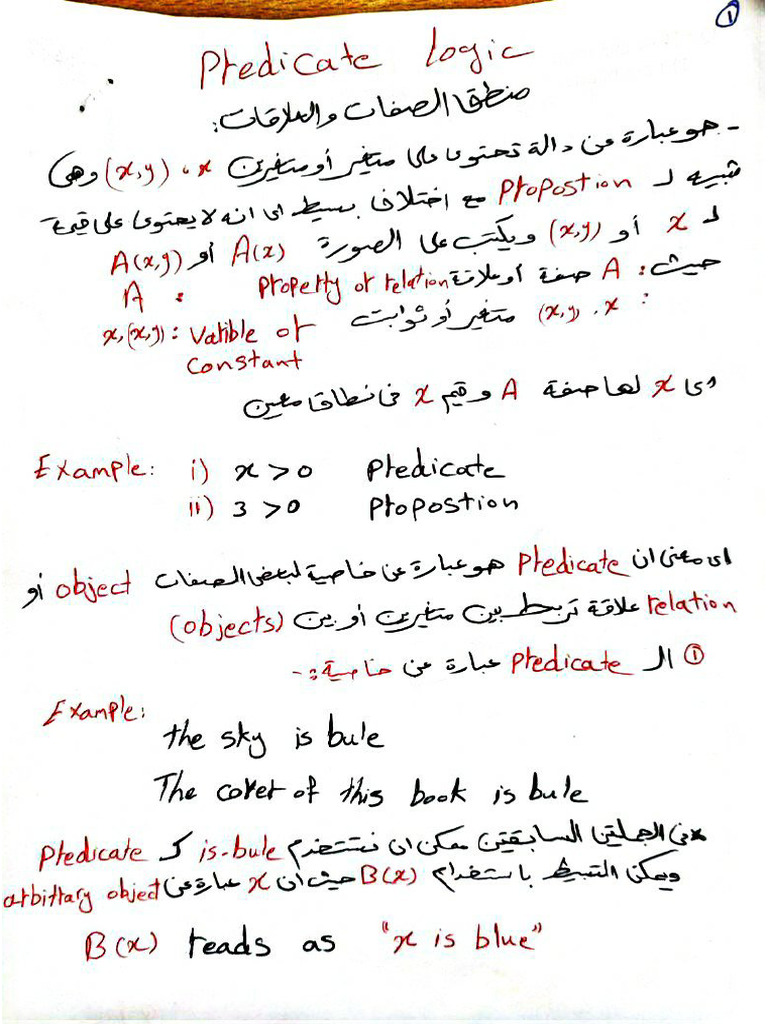 ①
Predicate logic
منطق الصفات والعلاقات:
- هو عبارة عن دالة تحتوى على متغير أو متغيرين x ، (x,y) وهى
شبيه لـ Propostion مع اختلاف بسيط اى انه لا يحتوى على قيمة
لـ x أو (x,y) ويكتب على الصورة A(x) أو A(x,y)
حيث: A صفة أو علاقة Property or relation : A
: x ، (x,y) متغير أو ثوابت x,(x,y): Varible or
constant
اى x لها صفة A وقيم x فى نطاق معين
Example: i) x > 0 Predicate
ii) 3 > 0 Propostion
اى معنى ان Predicate هو عبارة عن خاصية لبعض الصفات object أو
relation علاقة تربط بين متغيرين أو بين (objects)
① الـ Predicate عبارة عن خاصية :-
Example:
the sky is bule
The cover of this book is bule
* فى الجملتين السابقتين ممكن ان نستخدم is-bule كـ Predicate
ويمكن التبسيط باستخدام B(x) حيث أن x عبارة عن arbittrary object
B(x) reads as "x is blue"